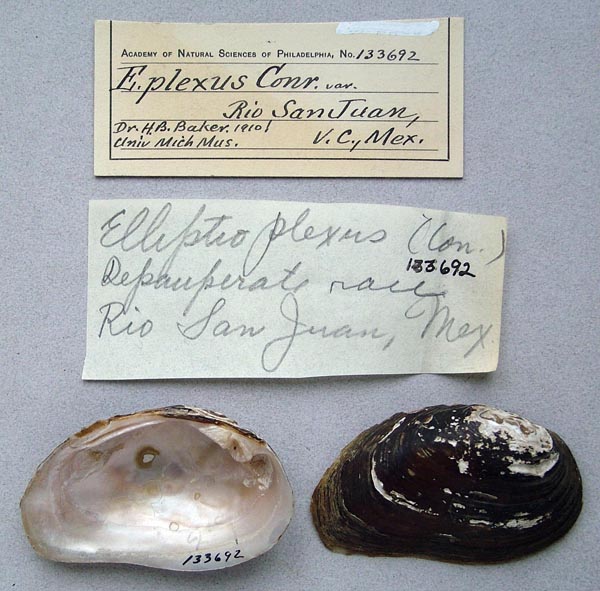 ACADEMY OF NATURAL SCIENCES OF PHILADELPHIA, NO. 133692
E. plexus Conr. var.
Rio San Juan,
Dr. H. B. Baker. 1910!
V. C., Mex.
Univ Mich Mus.
Elliptio plexus (Con.)
133692
Depauperate race
Rio San Juan, Mex.
133692